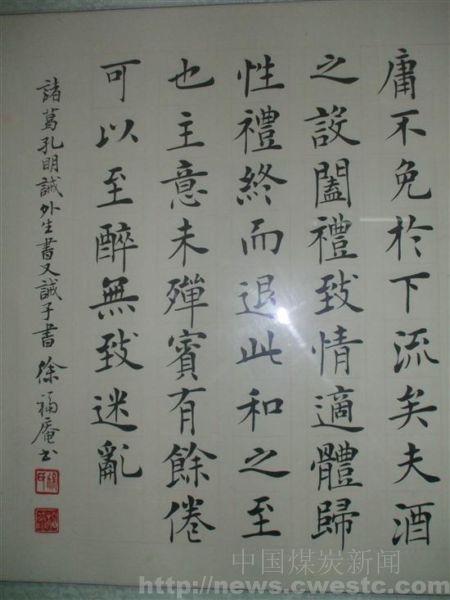 庸不免於下流矣夫酒
之設闔禮致情適體歸
性禮終而退此和之至
也主意未殫賓有餘倦
可以至醉無致迷亂
諸葛孔明誡外生書又誡子書 徐福庵书
中国煤炭新闻
http://news.cwestc.com